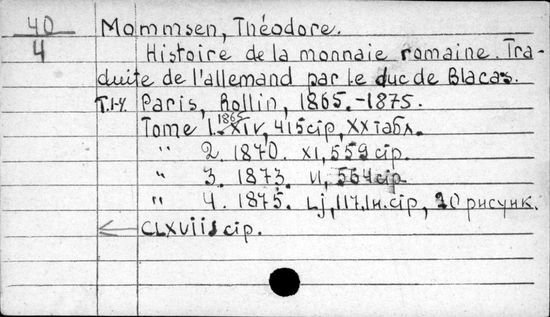 40 Mommsen, Théodore.
4 Histoire de la monnaie romaine. Tra-
duite de l'allemand par le duc de Blacas.
T.1-4. Paris, Rollin, 1865.-1875.
Tome 1. 1865 XIV, 415 cтр, XX табл.
" 2. 1870. XI, 559 стр.
" 3. 1873. VI, 564 стр
" 4. 1875. стр, 20 рисунк.
CLXVIII стр.